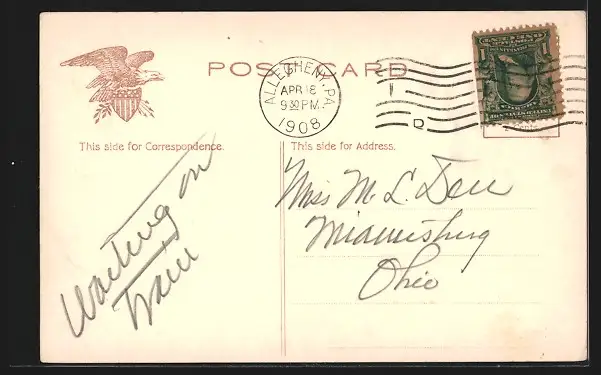 POST CARD
ALLEGHENY, PA.
APR 18
930 PM
1908
D
This side for Correspondence.
This side for Address.
Waiting on
train
Miss M. L.
Miamisburg
Ohio